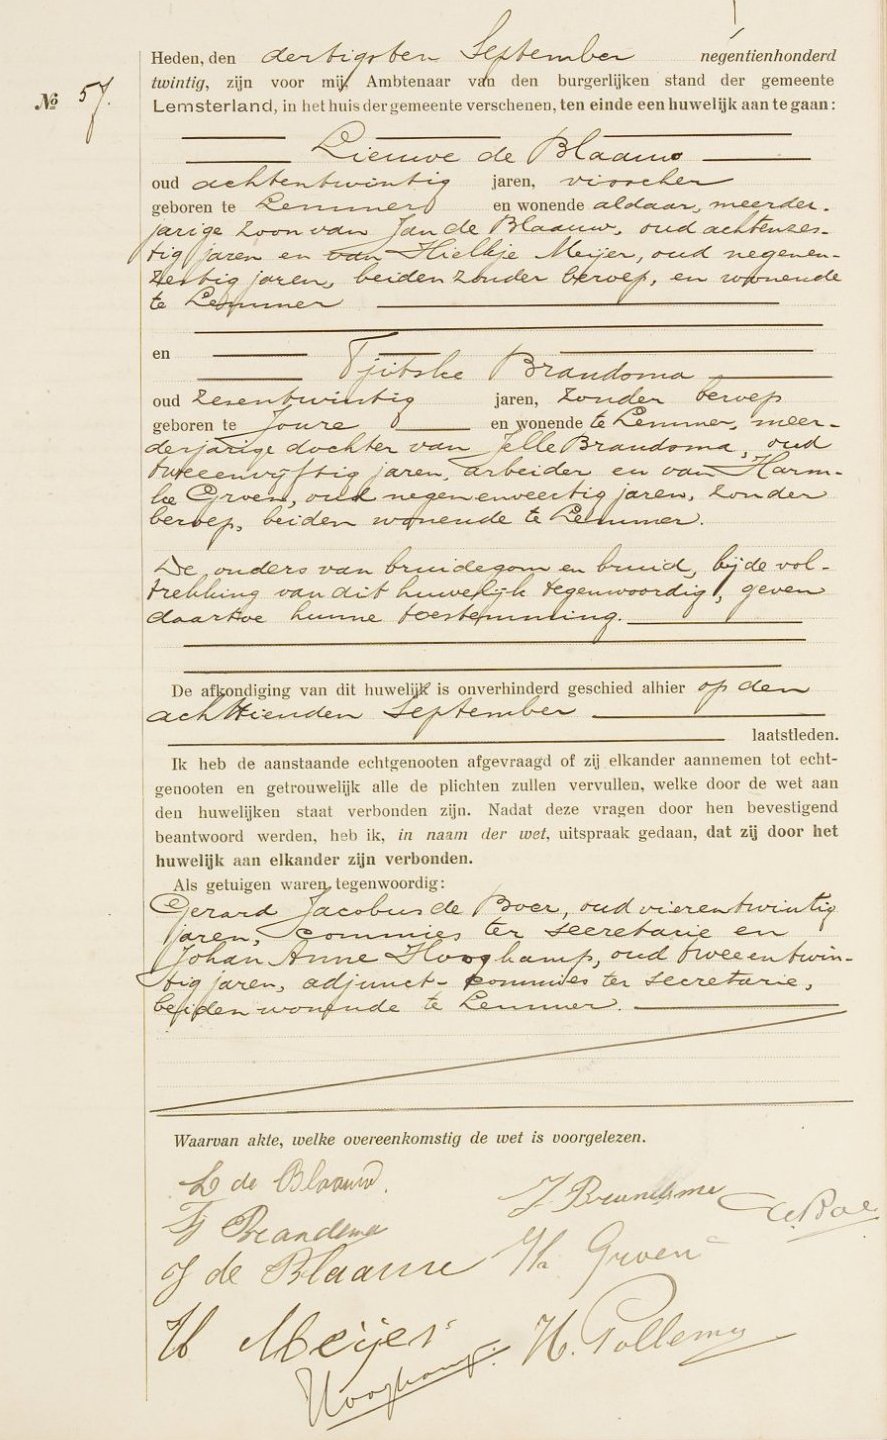 Heden, den dertigsten September negentienhonderd
twintig, zijn voor mij, Ambtenaar van den burgerlijken stand der gemeente
№ 57.
Lemsterland, in het huis der gemeente verschenen, ten einde een huwelijk aan te gaan:
Lieuwe de Blaauw
oud achtentwintig jaren, visscher
geboren te Lemmer en wonende aldaar, meerder-
jarige zoon van Jan de Blaauw, oud achtenzes-
tig jaren en van Hielkje Meijer, oud negenen-
zestig jaren, beiden zonder beroep, en wonende
te Lemmer
en
Tjitske Brandsma
oud zesentwintig jaren, zonder beroep
geboren te Joure en wonende te Lemmer, meer-
derjarige dochter van Jelle Brandsma, oud
tweeenvijftig jaren, arbeider en van Harm-
ke Groen, oud negenenveertig jaren, zonder
beroep, beiden wonende te Lemmer.
De ouders van bruidegom en bruid, bij de vol-
trekking van dit huwelijk tegenwoordig, geven
daartoe hunne toestemming.
De afkondiging van dit huwelijk is onverhinderd geschied alhier op den
achttienden September
laatstleden.
Ik heb de aanstaande echtgenooten afgevraagd of zij elkander aannemen tot echt-
genooten en getrouwelijk alle de plichten zullen vervullen, welke door de wet aan
den huwelijken staat verbonden zijn. Nadat deze vragen door hen bevestigend
beantwoord werden, heb ik, in naam der wet, uitspraak gedaan, dat zij door het
huwelijk aan elkander zijn verbonden.
Als getuigen waren tegenwoordig:
Gerard Jacobus de Boer, oud vierentwintig
jaren, commies ter secretarie en
Johan Anne Hooghamp, oud tweeentwin-
tig jaren, adjunct-commies ter secretarie,
beiden wonende te Lemmer.
Waarvan akte, welke overeenkomstig de wet is voorgelezen.
L de Blaauw.
J Brandsma
Tj Brandsma
J de Blaauw
H Groen
H Meijer
H. Pollema
Hooghamp.